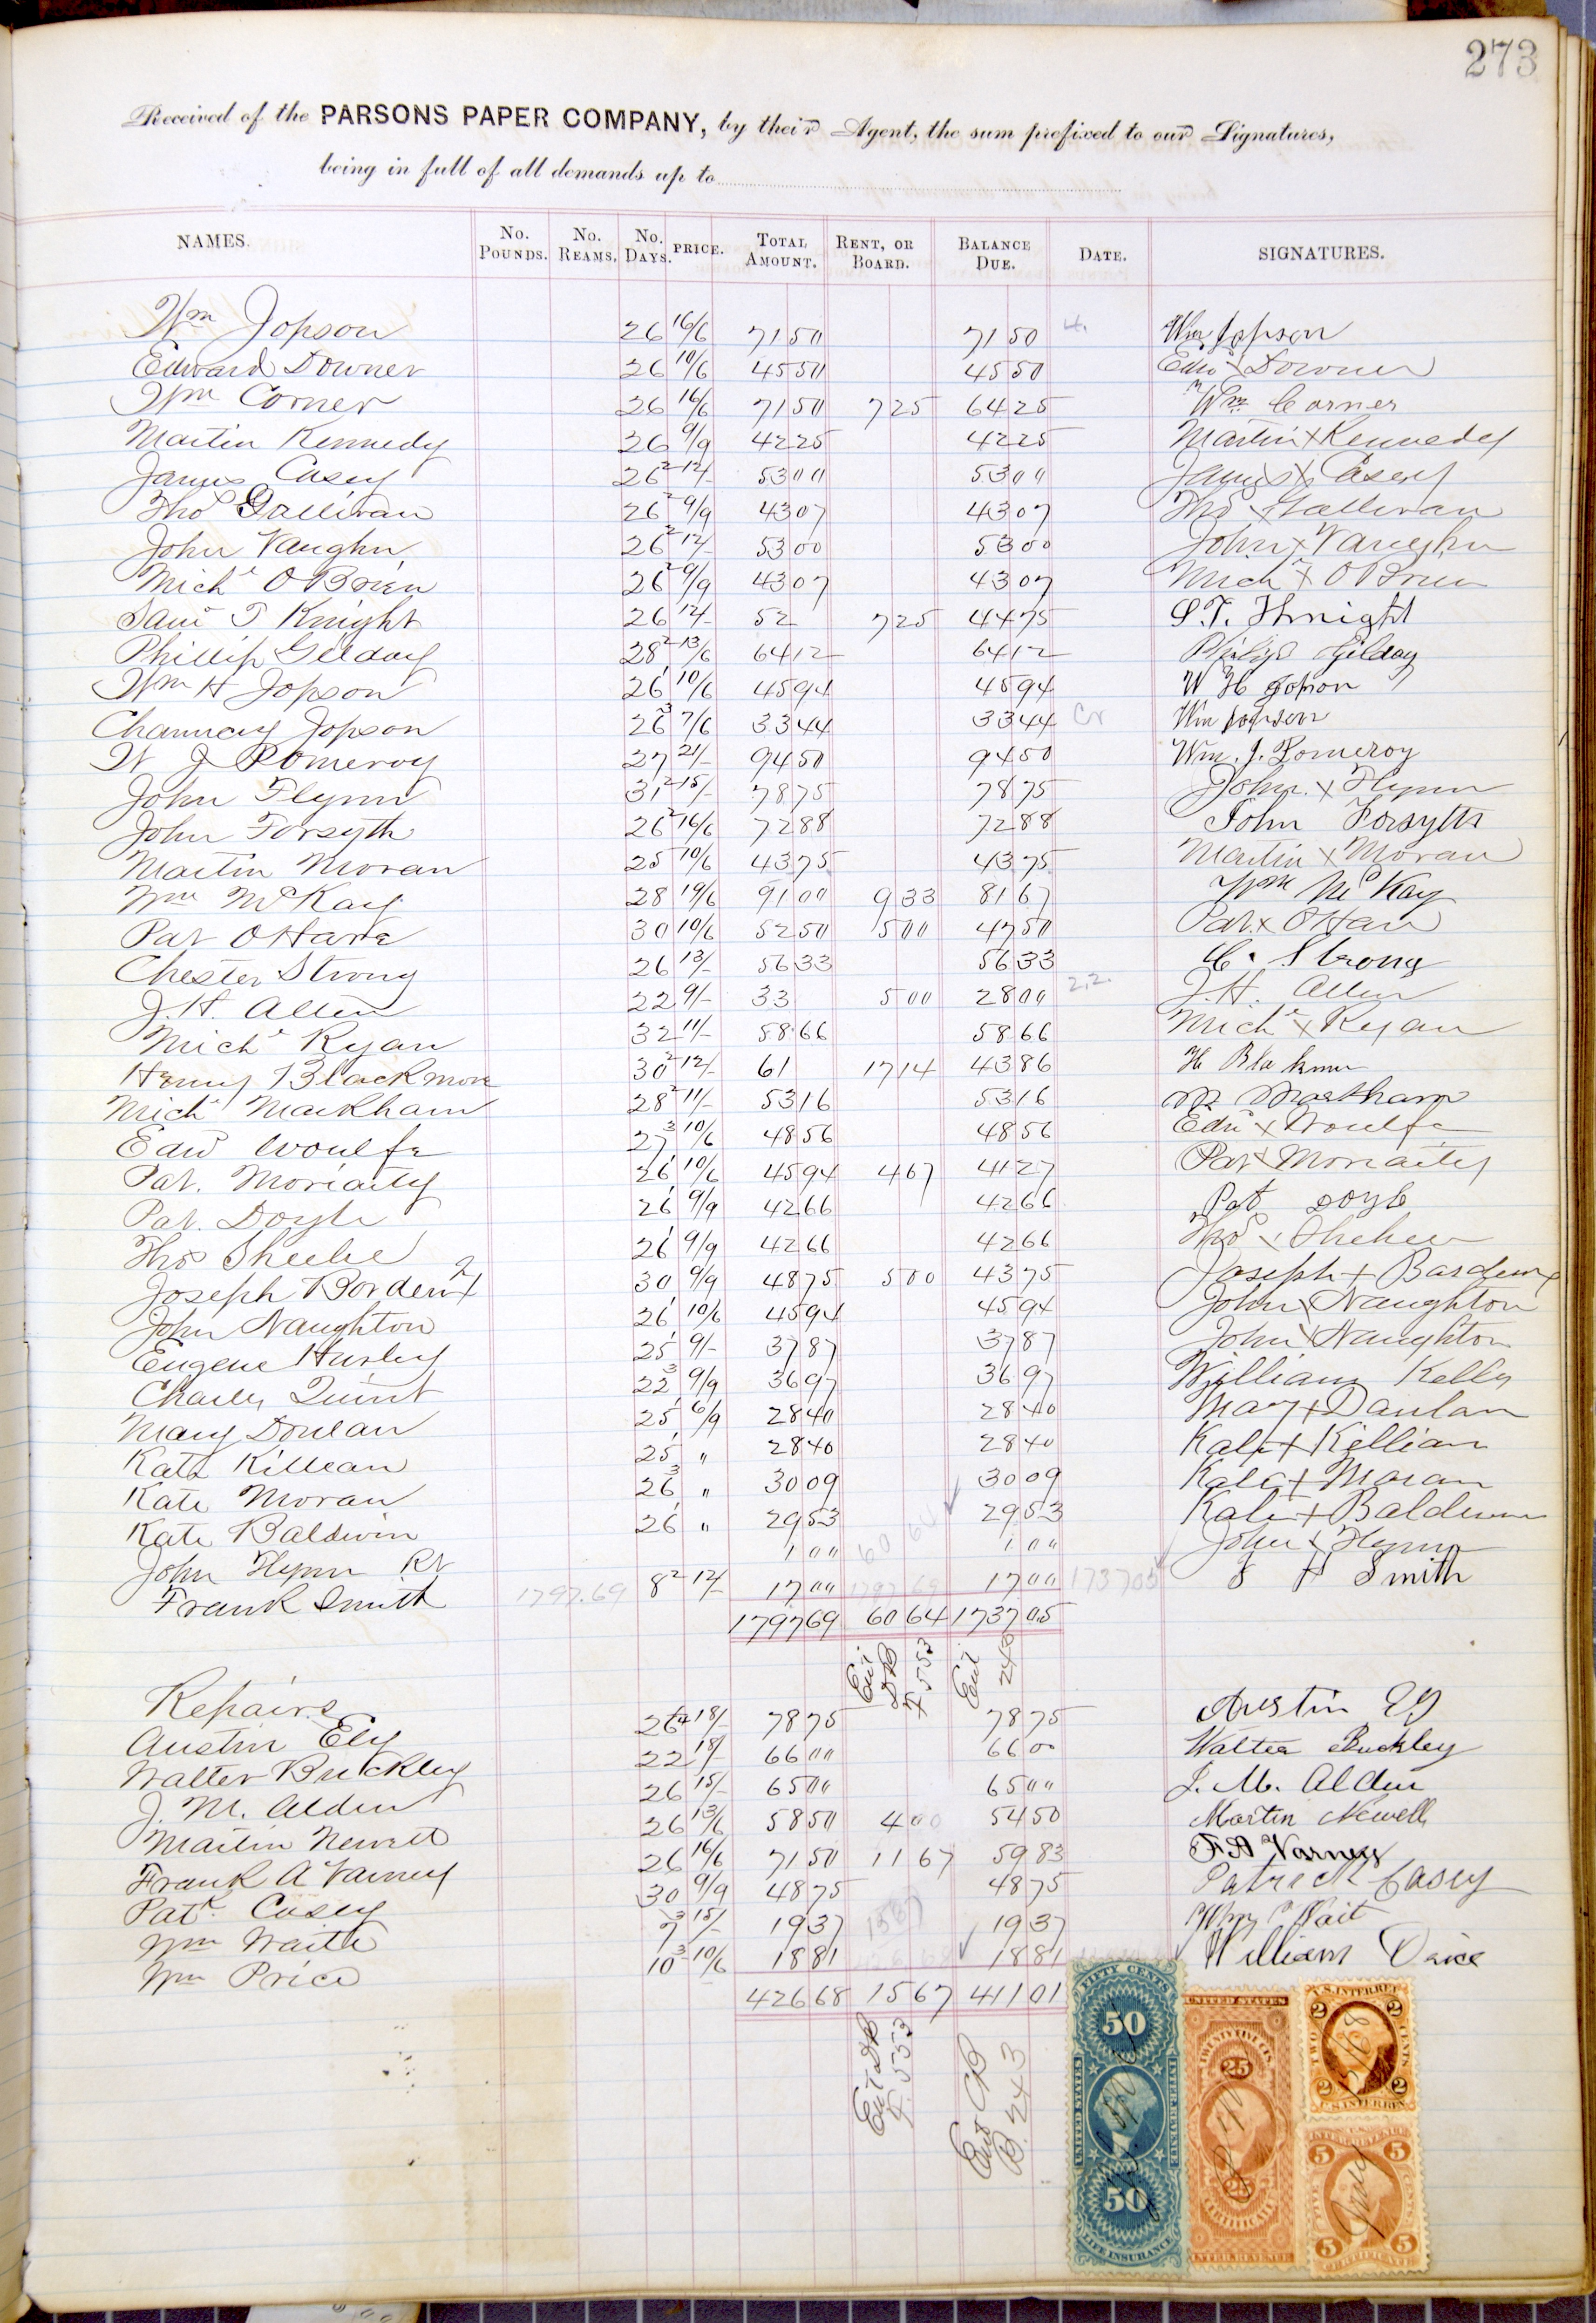 273
Received of the PARSONS PAPER COMPANY, by their Agent, the sum prefixed to our Signatures,
being in full of all demands up to
NAMES. No. POUNDS. No. REAMS. No. DAYS. PRICE. TOTAL AMOUNT. RENT, OR BOARD. BALANCE DUE. DATE. SIGNATURES.
Wm Jopson 26 16/6 71 50 71 50 4. Wm Jopson
Edward Downer 26 10/6 45 50 45 50 Edw x Downer
Wm Corner 26 16/6 71 50 7 25 64 25 Wm Corner
Martin Kennedy 26 9/9 42 25 42 25 Martin x Kennedy
James Casey 26 2 12/- 53 00 53 00 James x Casey
Thos Gallivan 26 2 9/9 43 07 43 07 Thos x Gallivan
John Vaughn 26 2 12/- 53 00 53 00 John x Vaughn
Michl O Brien 26 2 9/9 43 07 43 07 Michl x O Brien
Saml T Knight 26 12/- 52 7 25 44 75 S. T. Knight
Phillip Gilday 28 2 13/6 64 12 64 12 Philip Gilday
Wm H Jopson 26 1 10/6 45 94 45 94 W H Jopson
Chauncey Jopson 26 3 7/6 33 44 33 44 Cr Wm Jopson
W J Pomeroy 27 21/- 94 50 94 50 Wm. J. Pomeroy
John Flynn 31 2 15/- 78 75 78 75 John x Flynn
John Forsyth 26 2 16/6 72 88 72 88 John Forsyth
Martin Moran 25 10/6 43 75 43 75 Martin x Moran
Wm McKay 28 19/6 91 00 9 33 81 67 Wm McKay
Pat O Hara 30 10/6 52 50 5 00 47 50 Pat x O Hara
Chester Strong 26 13/- 56 33 56 33 C. Strong
J. H. Allen 22 9/- 33 5 00 28 00 2.2. J. H. Allen
Michl Ryan 32 11/- 58 66 58 66 Michl x Ryan
Henry Blackmore 30 2 12/- 61 17 14 43 86 H Blakmur
Michl Markham 28 2 11/- 53 16 53 16 M Markham
Edw Woulfe 27 3 10/6 48 56 48 56 Edw x Woulfe
Pat. Moriaity 26 1 10/6 45 94 4 67 41 27 Pat x Moriaity
Pat. Doyle 26 1 9/9 42 66 42 66 Pat Doyle
Thos Sheehe 26 1 9/9 42 66 42 66 Thos x Shehee
Joseph Borden x 30 9/9 48 75 5 00 43 75 Joseph + Bardeux
John Naughton 26 1 10/6 45 94 45 94 John x Naughton
Eugene Hurley 25 1 9/- 37 87 37 87 John x Naughton
Charley Quint 22 3 9/9 36 97 36 97 William Kelly
Mary Donlan 25 1 6/9 28 40 28 40 Mary + Danlan
Kate Killean 25 1 " 28 40 28 40 Kate + Killian
Kate Moran 26 3 " 30 09 30 09 Kate + Moran
Kate Baldwin 26 1 " 29 53 60 64 29 53 Kate + Baldwin
John Flynn Rt 1 00 1 00 John x Flynn
Frank Smith 1797.69 8 2 12/- 17 00 1797 69 17 00 1737 05 F H Smith
1797 69 60 64 1737 05
Ent DB F 553 Ent 240
Repairs
Austin Ely 26 18/- 78 75 78 75 Austin Ely
Walter Buckley 22 18/- 66 00 66 00 Walter Buckley
J. M. Alden 26 15/- 65 00 65 00 J. M. Alden
Martin Newell 26 13/6 58 50 4 00 54 50 Martin Newell
Frank A Varney 26 16/6 71 50 11 67 59 83 F A Varney
Patk Casey 30 9/9 48 75 48 75 Patrick Casey
Wm Waite 7 3 15/- 19 37 1567 19 37 Wm Wait
Wm Price 10 3 10/6 18 81 18 81 William Price
426 68 15 67 411 01
Ent DB F. 553
Ent CB P. 243
FIFTY CENTS
50
UNITED STATES INTER. REVENUE
50
LIFE INSURANCE
UNITED STATES
TWENTY FIVE CTS.
25
25
CERTIFICATE
INTER. REVENUE
U.S. INTER. REV.
2 2
TWO CENTS
2 2
INTER. REVENUE
5 5
FIVE CENTS
5 5
CERTIFICATE